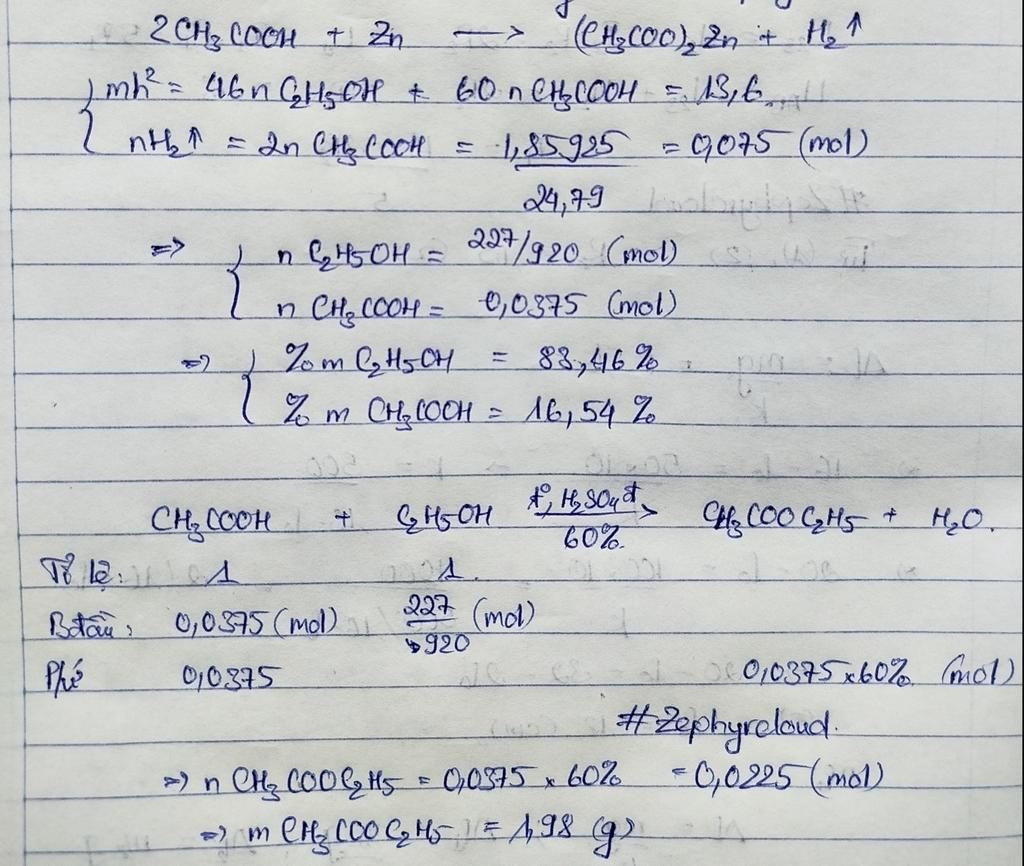 2CH₃COOH + Zn → (CH₃COO)₂Zn + H₂↑
mh² = 46n C₂H₅OH + 60 n CH₃COOH = 13,6
nH₂↑ = 2n CH₃COOH = 1,85925/24,79 = 0,075 (mol)
=> n C₂H₅OH = 227/920 (mol)
n CH₃COOH = 0,0375 (mol)
=> % m C₂H₅OH = 83,46 %
% m CH₃COOH = 16,54 %
CH₃COOH + C₂H₅OH t°, H₂SO₄đ 60% → CH₃COOC₂H₅ + H₂O.
Tỉ lệ: 1 1
Bđầu: 0,0375 (mol) 227/920 (mol)
Pứ 0,0375 0,0375 x 60% (mol)
#Zephyrcloud.
=> n CH₃COOC₂H₅ = 0,0375 x 60% = 0,0225 (mol)
=> m CH₃COOC₂H₅ = 1,98 (g)